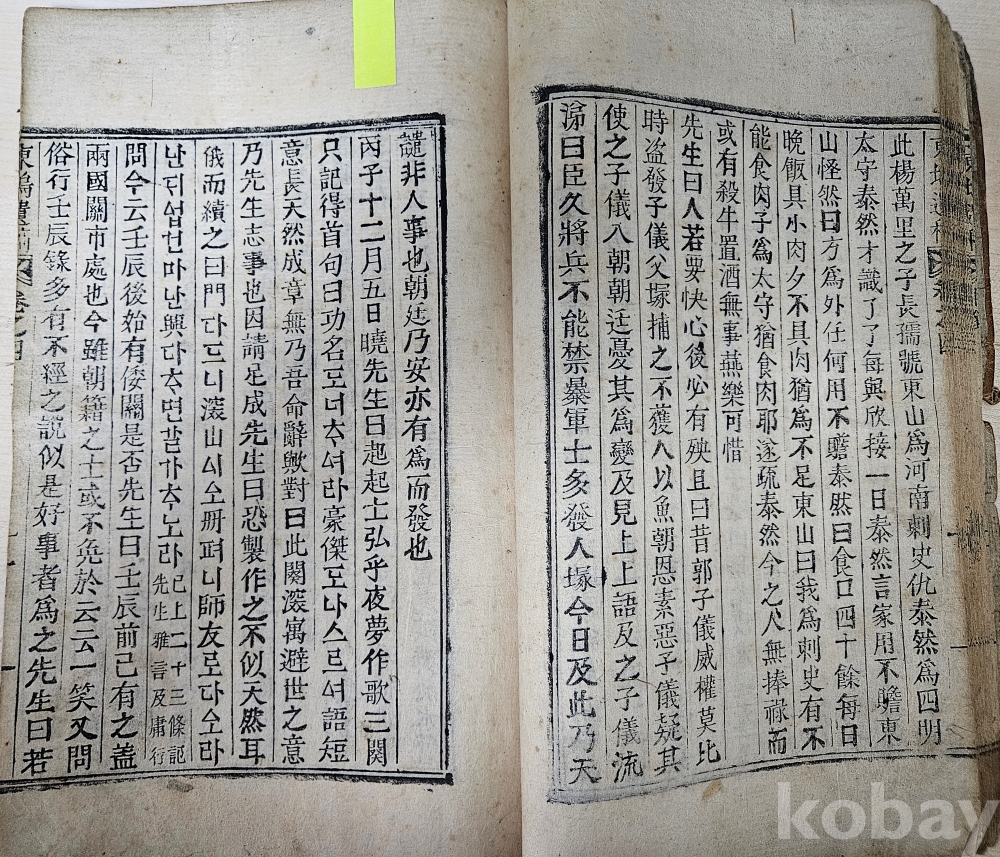 卷之四
此楊萬里之子長孺號東山爲河南刺史仇泰然爲四明
太守泰然才識了了每與欣接一日泰然言家用不贍東
山怪然曰方爲外任何用不贍泰然曰食口四十餘每日
晩飯具小肉夕不具肉猶爲不足東山曰我爲刺史有不
能食肉子爲太守猶食肉耶遂疏泰然今之人無捧祿而
或有殺牛置酒無事燕樂可惜
先生曰人若要快心後必有殃且曰昔郭子儀威權莫比
時盜發子儀父塚捕之不獲人以魚朝恩素惡子儀疑其
使之子儀入朝朝廷憂其爲變及見上上語及之子儀流
涕曰臣久將兵不能禁暴軍士多發人塚今日及此乃天
譴非人事也朝廷乃安亦有爲而發也
丙子十二月五日曉先生曰起起士弘乎夜夢作歌三闋
只記得首句曰功名도너추셔라豪傑도나스르셔語短
意長天然成章無乃吾命辭歟對曰此闋深寓避世之意
乃先生志事也因請足成先生曰恐製作之不似天然耳
俄而續之曰門다드니深山시오冊펴니師友로다오라
난듸섭건마난興다추면갈가추노라已上二十三條記
先生雅言及庸行
問今云壬辰後始有倭關是否先生曰壬辰前已有之盖
兩國關市處也今雖朝籍之士或不免於云云一笑又問
俗行壬辰錄多有不經之說似是好事者爲之先生曰若
卷之四
kobay